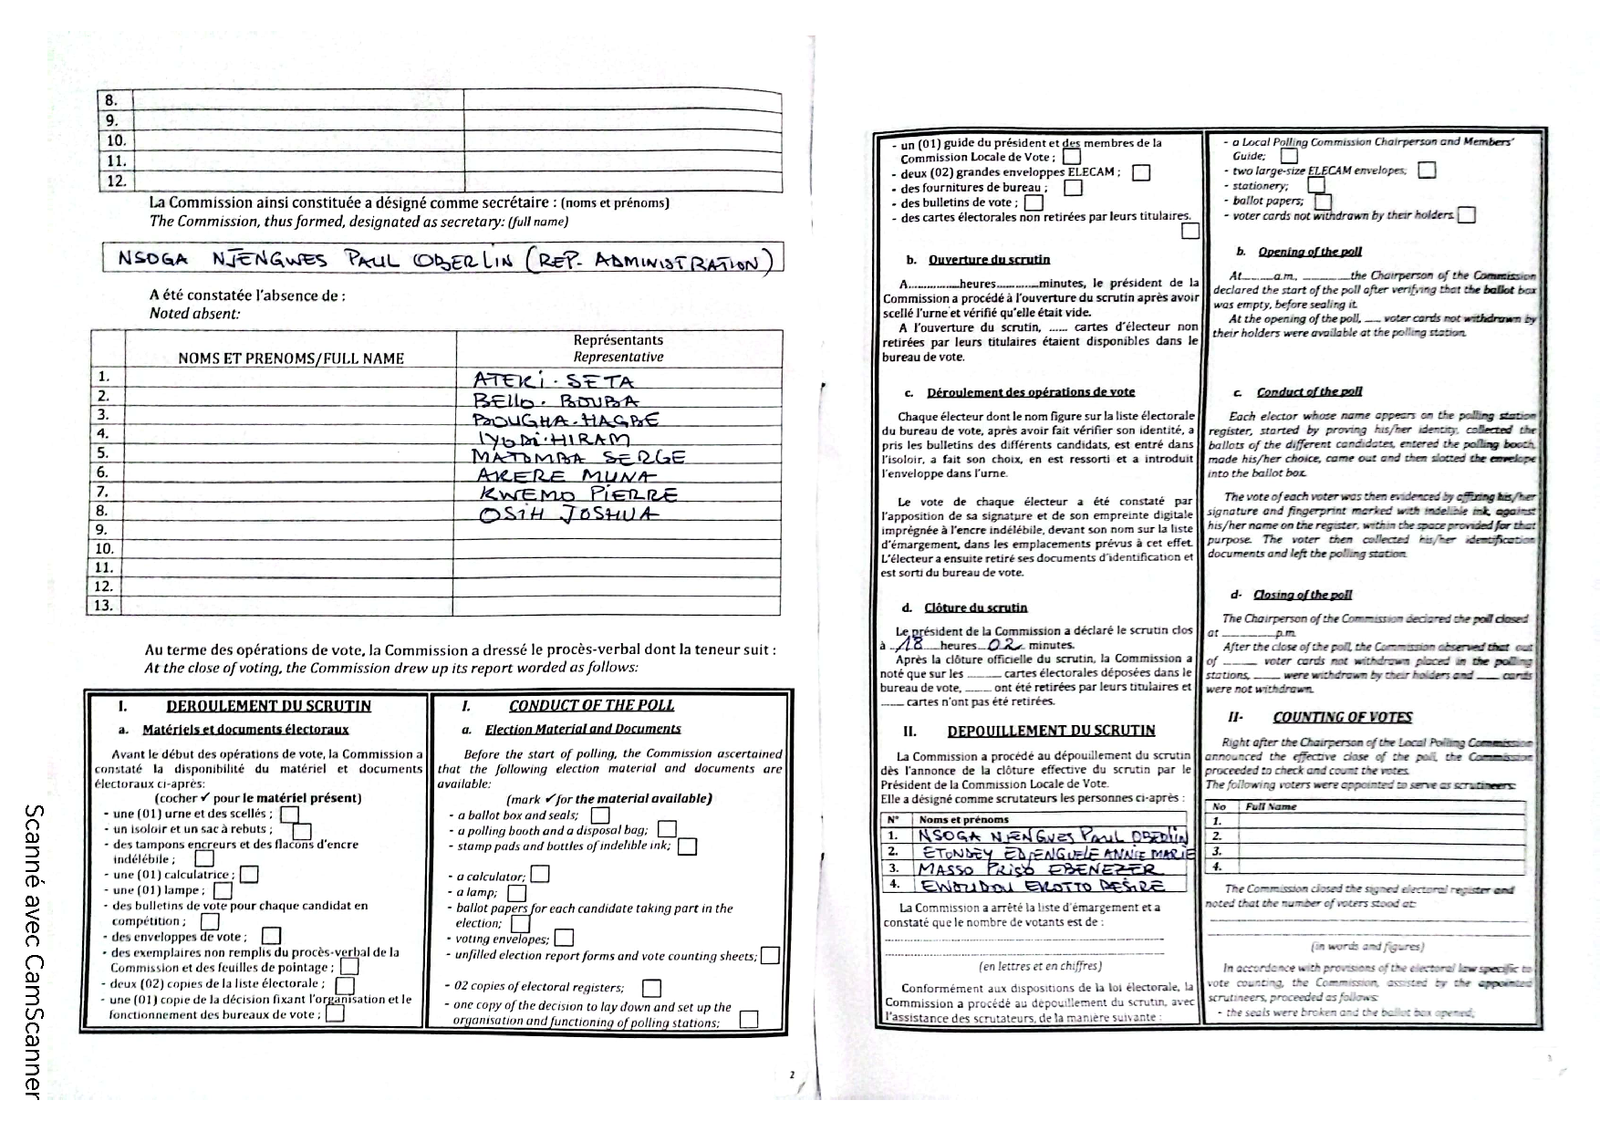 8.
9.
10.
11.
12.
La Commission ainsi constituée a désigné comme secrétaire : (noms et prénoms)
The Commission, thus formed, designated as secretary: (full name)
NSOGA NJENGWES PAUL OBERLIN (REP. ADMINISTRATION)
A été constatée l'absence de :
Noted absent:
NOMS ET PRENOMS/FULL NAME
Représentants
Representative
1. ATEKI - SETA
2. BELLO - BOUBA
3. BOUGHA - HAGBE
4. IYODI - HIRAM
5. MATOMBA SERGE
6. AKERE MUNA
7. KWEMO PIERRE
8. OSIH JOSHUA
9.
10.
11.
12.
13.
Au terme des opérations de vote, la Commission a dressé le procès-verbal dont la teneur suit :
At the close of voting, the Commission drew up its report worded as follows:
I. DEROULEMENT DU SCRUTIN
a. Matériels et documents électoraux
Avant le début des opérations de vote, la Commission a
constaté la disponibilité du matériel et documents
électoraux ci-après:
(cocher ✓ pour le matériel présent)
- une (01) urne et des scellés ;
- un isoloir et un sac à rebuts ;
- des tampons encreurs et des flacons d'encre
indélébile ;
- une (01) calculatrice ;
- une (01) lampe ;
- des bulletins de vote pour chaque candidat en
compétition ;
- des enveloppes de vote ;
- des exemplaires non remplis du procès-verbal de la
Commission et des feuilles de pointage ;
- deux (02) copies de la liste électorale ;
- une (01) copie de la décision fixant l'organisation et le
fonctionnement des bureaux de vote ;
I. CONDUCT OF THE POLL
a. Election Material and Documents
Before the start of polling, the Commission ascertained
that the following election material and documents are
available:
(mark ✓ for the material available)
- a ballot box and seals;
- a polling booth and a disposal bag;
- stamp pads and bottles of indelible ink;
- a calculator;
- a lamp;
- ballot papers for each candidate taking part in the
election;
- voting envelopes;
- unfilled election report forms and vote counting sheets;
- 02 copies of electoral registers;
- one copy of the decision to lay down and set up the
organisation and functioning of polling stations;
2
- un (01) guide du président et des membres de la
Commission Locale de Vote ;
- deux (02) grandes enveloppes ELECAM ;
- des fournitures de bureau ;
- des bulletins de vote ;
- des cartes électorales non retirées par leurs titulaires.
b. Ouverture du scrutin
A..............heures..............minutes, le président de la
Commission a procédé à l'ouverture du scrutin après avoir
scellé l'urne et vérifié qu'elle était vide.
A l'ouverture du scrutin, ...... cartes d'électeur non
retirées par leurs titulaires étaient disponibles dans le
bureau de vote.
c. Déroulement des opérations de vote
Chaque électeur dont le nom figure sur la liste électorale
du bureau de vote, après avoir fait vérifier son identité, a
pris les bulletins des différents candidats, est entré dans
l'isoloir, a fait son choix, en est ressorti et a introduit
l'enveloppe dans l'urne.
Le vote de chaque électeur a été constaté par
l'apposition de sa signature et de son empreinte digitale
imprégnée à l'encre indélébile, devant son nom sur la liste
d'émargement, dans les emplacements prévus à cet effet.
L'électeur a ensuite retiré ses documents d'identification et
est sorti du bureau de vote.
d. Clôture du scrutin
Le président de la Commission a déclaré le scrutin clos
à 18 heures 02 minutes.
Après la clôture officielle du scrutin, la Commission a
noté que sur les ........ cartes électorales déposées dans le
bureau de vote, ...... ont été retirées par leurs titulaires et
...... cartes n'ont pas été retirées.
II. DEPOUILLEMENT DU SCRUTIN
La Commission a procédé au dépouillement du scrutin
dès l'annonce de la clôture effective du scrutin par le
Président de la Commission Locale de Vote.
Elle a désigné comme scrutateurs les personnes ci-après :
N° Noms et prénoms
1. NSOGA NJENGUES PAUL OBERLIN
2. ETONDEY EDJENGUELE ANNIE MARIE
3. MASSO PRISO EBENEZER
4. EWOUDOU EKOTTO DESIRE
La Commission a arrêté la liste d'émargement et a
constaté que le nombre de votants est de :
(en lettres et en chiffres)
Conformément aux dispositions de la loi électorale, la
Commission a procédé au dépouillement du scrutin, avec
l'assistance des scrutateurs, de la manière suivante :
- a Local Polling Commission Chairperson and Members'
Guide;
- two large-size ELECAM envelopes;
- stationery;
- ballot papers;
- voter cards not withdrawn by their holders
b. Opening of the poll
At........a.m, ..........the Chairperson of the Commission
declared the start of the poll after verifying that the ballot box
was empty, before sealing it.
At the opening of the poll, .... voter cards not withdrawn by
their holders were available at the polling station.
c. Conduct of the poll
Each elector whose name appears on the polling station
register, started by proving his/her identity, collected the
ballots of the different candidates, entered the polling booth,
made his/her choice, came out and then slotted the envelope
into the ballot box.
The vote of each voter was then evidenced by affixing his/her
signature and fingerprint marked with indelible ink, against
his/her name on the register, within the space provided for that
purpose. The voter then collected his/her identification
documents and left the polling station.
d- Closing of the poll
The Chairperson of the Commission declared the poll closed
at ..............p.m.
After the close of the poll, the Commission observed that out
of ........ voter cards not withdrawn placed in the polling
stations, ...... were withdrawn by their holders and ...... cards
were not withdrawn.
II- COUNTING OF VOTES
Right after the Chairperson of the Local Polling Commission
announced the effective close of the poll, the Commission
proceeded to check and count the votes.
The following voters were appointed to serve as scrutineers:
No Full Name
1.
2.
3.
4.
The Commission closed the signed electoral register and
noted that the number of voters stood at:
(in words and figures)
In accordance with provisions of the electoral law specific to
vote counting, the Commission, assisted by the appointed
scrutineers, proceeded as follows:
- the seals were broken and the ballot box opened;
Scanné avec CamScanner